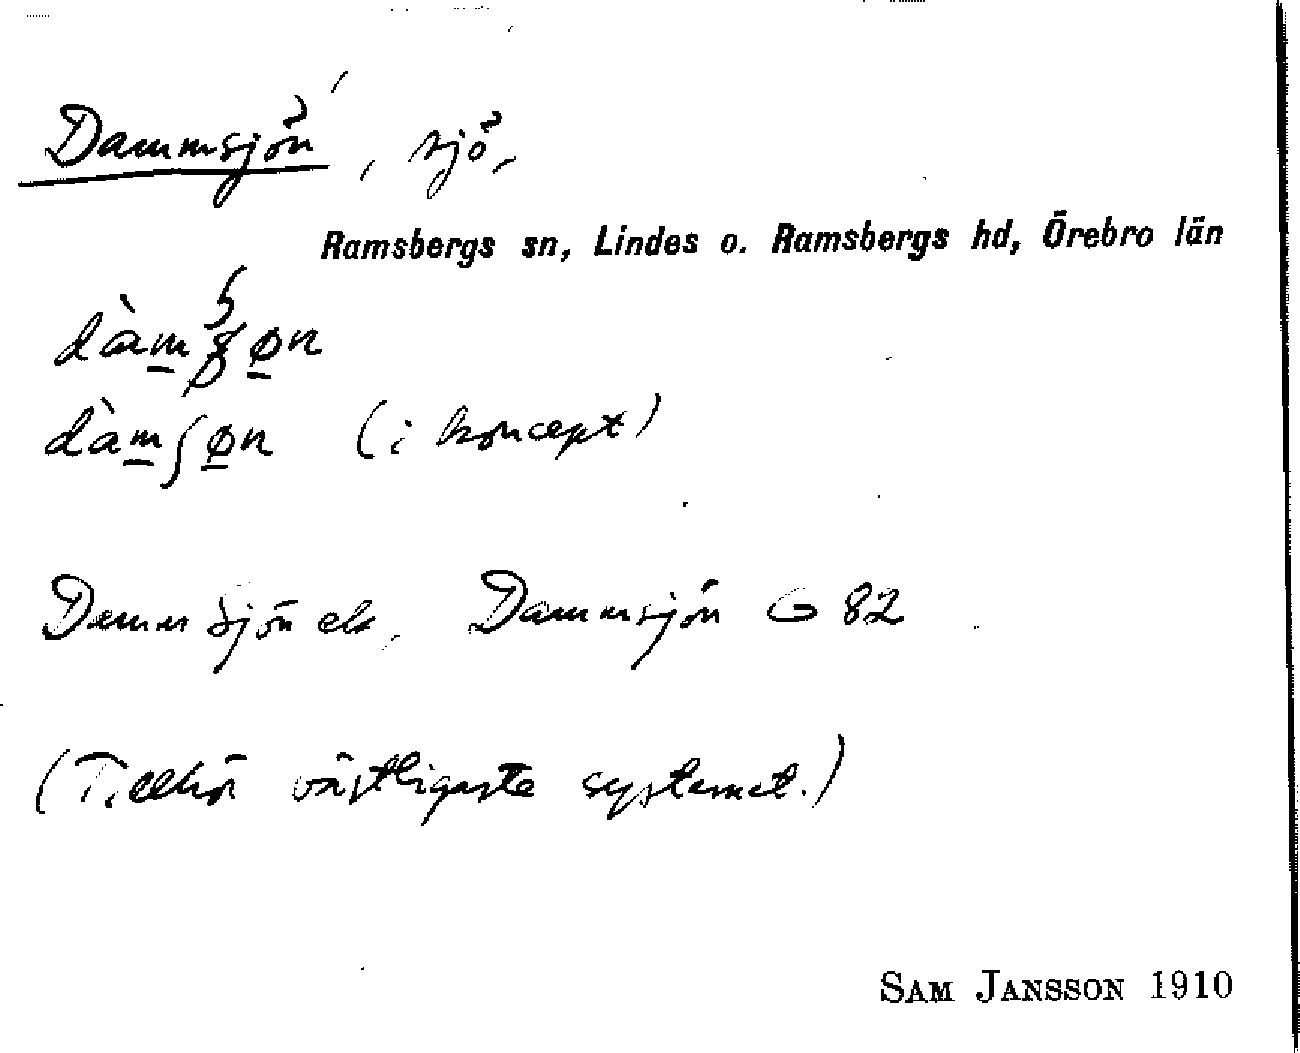 Dammsjön, sjö,
Ramsbergs sn, Lindes o. Ramsbergs hd, Örebro län
dàm̲ ø̲n
dàm̲ʃø̲n (i koncept)
Damm Sjön el. Dammsjön G 82
(Tillhör västligaste systemet.)
SAM JANSSON 1910